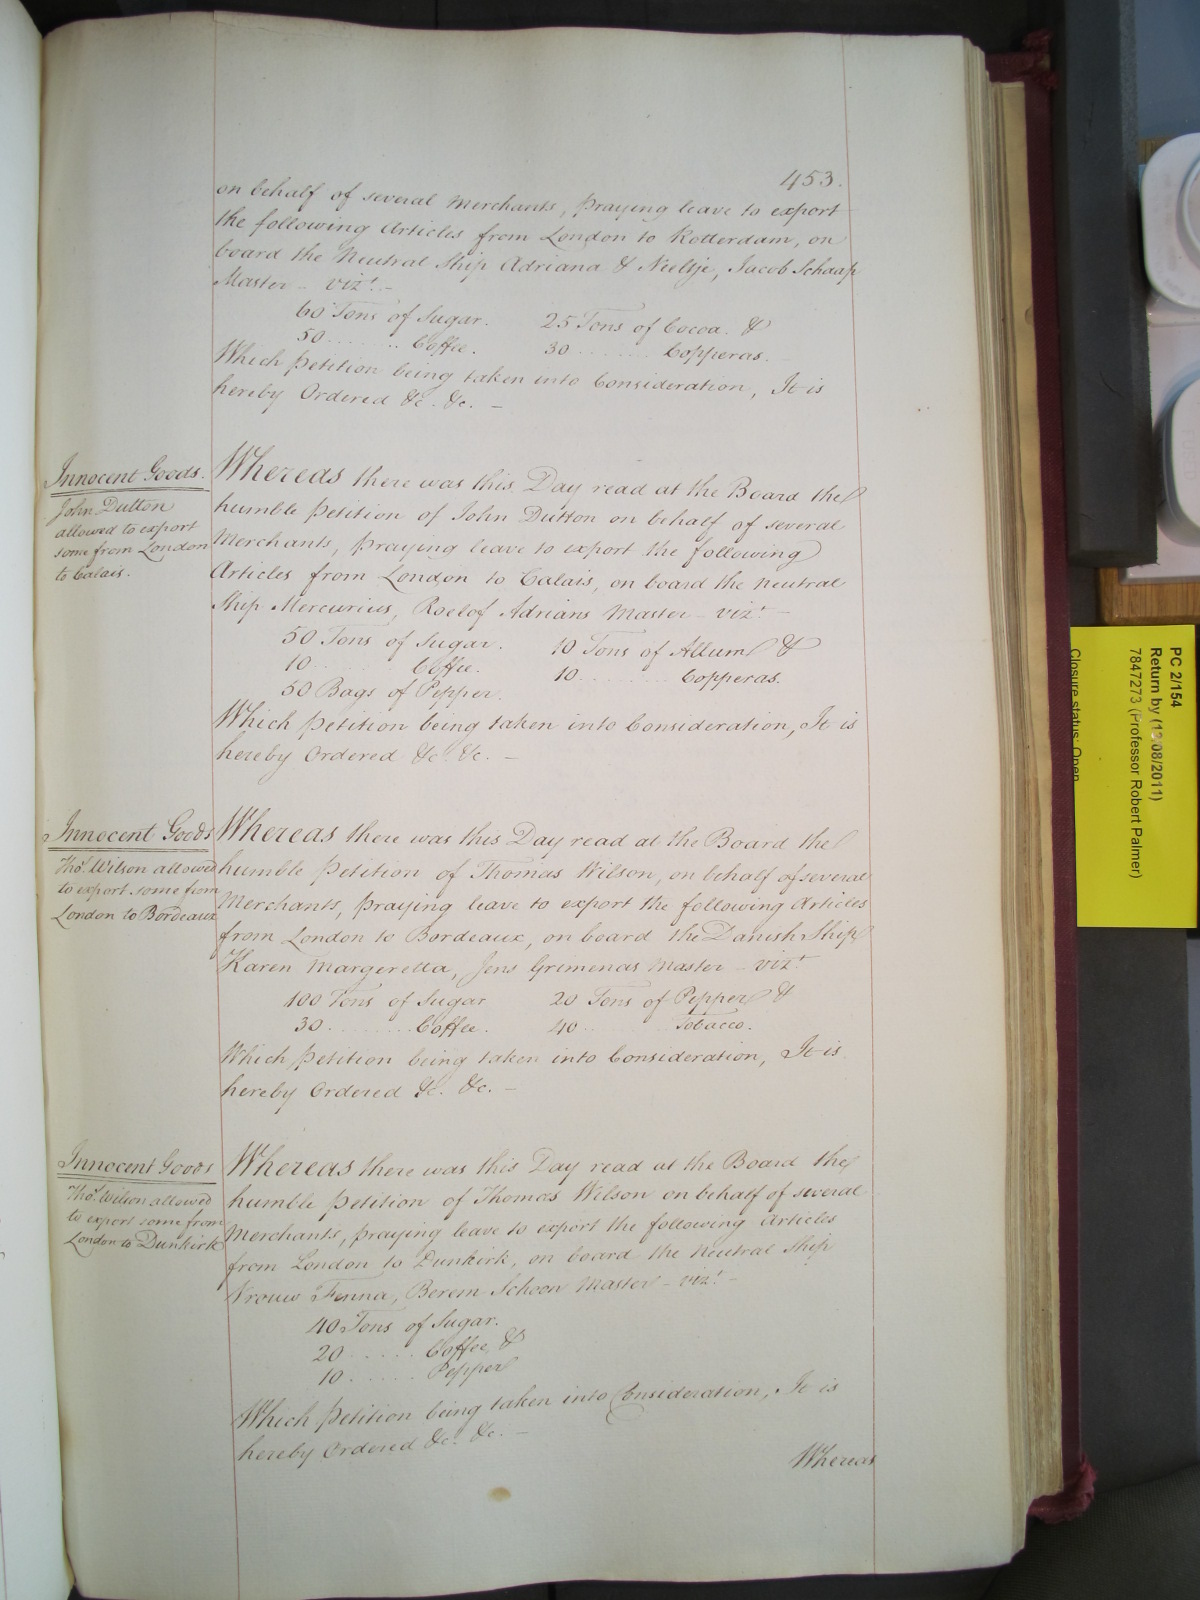 453.
on behalf of several Merchants, praying leave to export
the following Articles from London to Rotterdam, on
board the Neutral Ship Adriana & Neeltje, Jacob Schaap
Master - vizt. -
60 Tons of Sugar. 25 Tons of Cocoa. &
50 ........ Coffee. 30 ........ Copperas. -
Which Petition being taken into Consideration, It is
hereby Ordered &c. &c. -
Innocent Goods.
John Dutton
allowed to export
some from London
to Calais.
Whereas there was this Day read at the Board the
humble Petition of John Dutton on behalf of several
Merchants, praying leave to export the following
Articles from London to Calais, on board the Neutral
Ship Mercurius, Roelof Adrians Master - vizt. -
50 Tons of Sugar. 10 Tons of Allum &
10 ........ Coffee. 10 ........ Copperas.
50 Bags of Pepper.
Which Petition being taken into Consideration, It is
hereby Ordered &c. &c. -
Innocent Goods
Thos. Wilson allowed
to export some from
London to Bordeaux
Whereas there was this Day read at the Board the
humble Petition of Thomas Wilson, on behalf of several
Merchants, praying leave to export the following Articles
from London to Bordeaux, on board the Danish Ship
Karen Margeretta, Jens Grimenas Master - vizt.
100 Tons of Sugar 20 Tons of Pepper &
30 ........ Coffee. 40 ........ Tobacco.
Which Petition being taken into Consideration, It is
hereby Ordered &c. &c. -
Innocent Goods
Thos. Wilson allowed
to export some from
London to Dunkirk
Whereas there was this Day read at the Board the
humble Petition of Thomas Wilson on behalf of several
Merchants, praying leave to export the following Articles
from London to Dunkirk, on board the Neutral Ship
Vrouw Fenna, Berem Schoon Master - vizt. -
40 Tons of Sugar.
20 ...... Coffee, &
10 ...... Pepper
Which Petition being taken into Consideration, It is
hereby Ordered &c. &c. -
Whereas
PC 2/154
Return by (1 08/2011)
7847273 (Professor Robert Palmer)
Closure status: Open